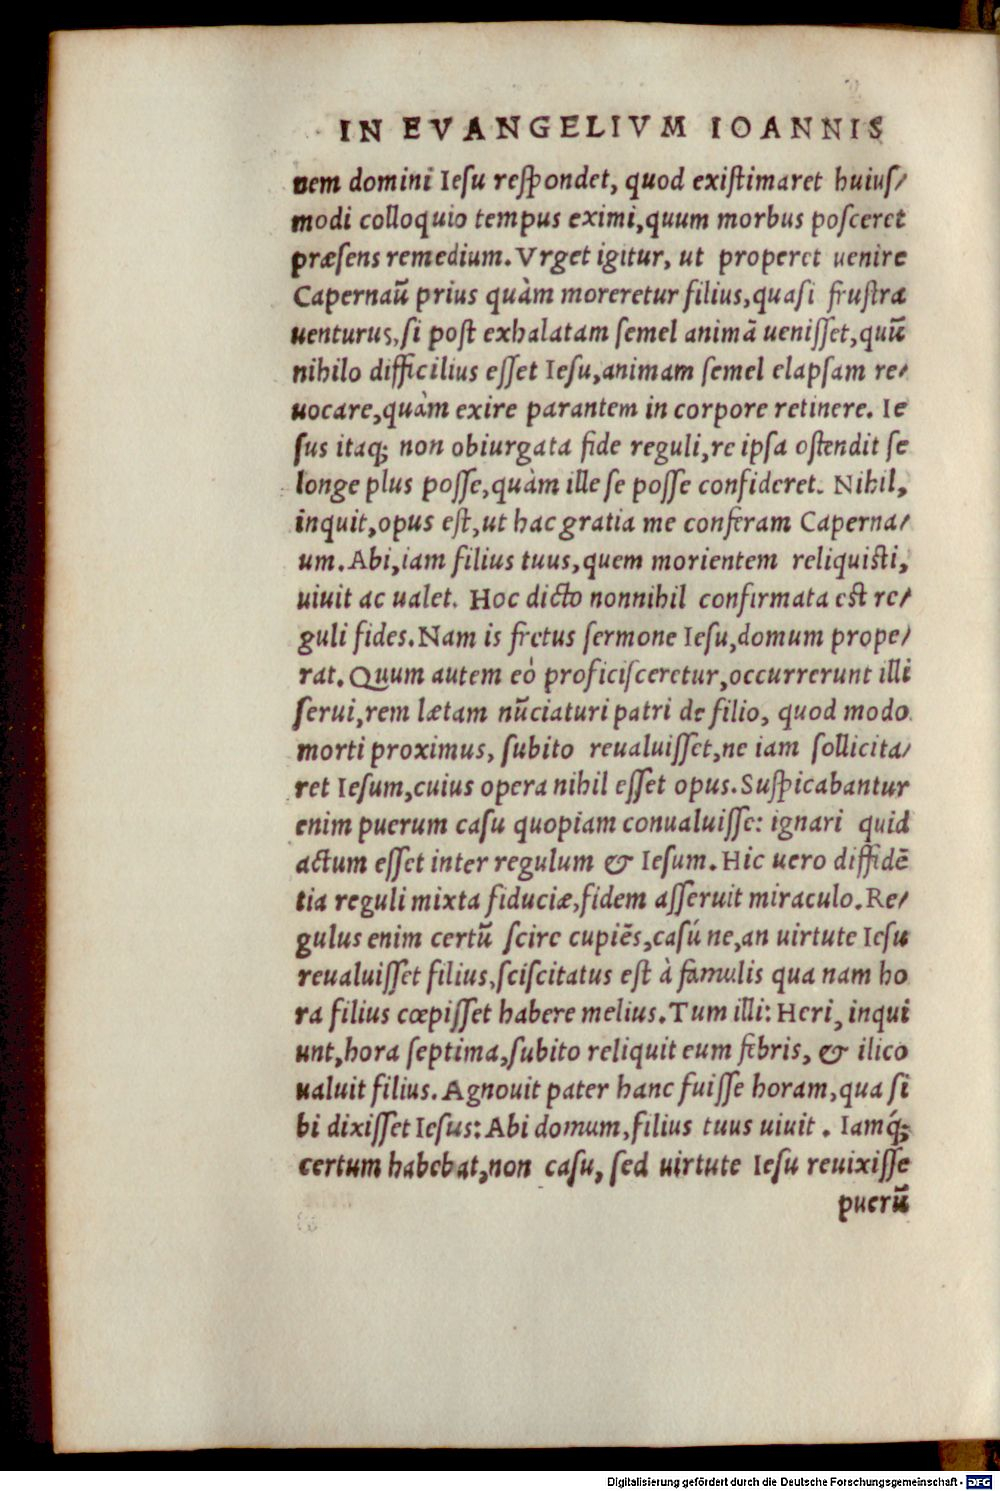 IN EVANGELIVM IOANNIS
nem domini Iesu respondet, quod existimaret huius/
modi colloquio tempus eximi, quum morbus posceret
præsens remedium. Vrget igitur, ut properet uenire
Capernaũ prius quàm moreretur filius, quasi frustra
uenturus, si post exhalatam semel animã uenisset, quũ
nihilo difficilius esset Iesu, animam semel elapsam re/
uocare, quàm exire parantem in corpore retinere. Ie
sus itaq; non obiurgata fide reguli, re ipsa ostendit se
longe plus posse, quàm ille se posse confideret. Nihil,
inquit, opus est, ut hac gratia me conferam Caperna/
um. Abi, iam filius tuus, quem morientem reliquisti,
uiuit ac ualet. Hoc dicto nonnihil confirmata est re/
guli fides. Nam is fretus sermone Iesu, domum prope/
rat. Quum autem eò proficisceretur, occurrerunt illi
serui, rem lætam nũciaturi patri de filio, quod modo
morti proximus, subito reualuisset, ne iam sollicita/
ret Iesum, cuius opera nihil esset opus. Suspicabantur
enim puerum casu quopiam conualuisse: ignari quid
actum esset inter regulum & Iesum. Hic uero diffidẽ
tia reguli mixta fiduciæ, fidem asseruit miraculo. Re/
gulus enim certũ scire cupiẽs, casú ne, an uirtute Iesu
reualuisset filius, sciscitatus est à famulis qua nam ho
ra filius cœpisset habere melius. Tum illi: Heri, inqui
unt, hora septima, subito reliquit eum febris, & ilico
ualuit filius. Agnouit pater hanc fuisse horam, qua si
bi dixisset Iesus: Abi domum, filius tuus uiuit. Iamq́;
certum habebat, non casu, sed uirtute Iesu reuixisse
puerũ
Digitalisierung gefördert durch die Deutsche Forschungsgemeinschaft - DFG